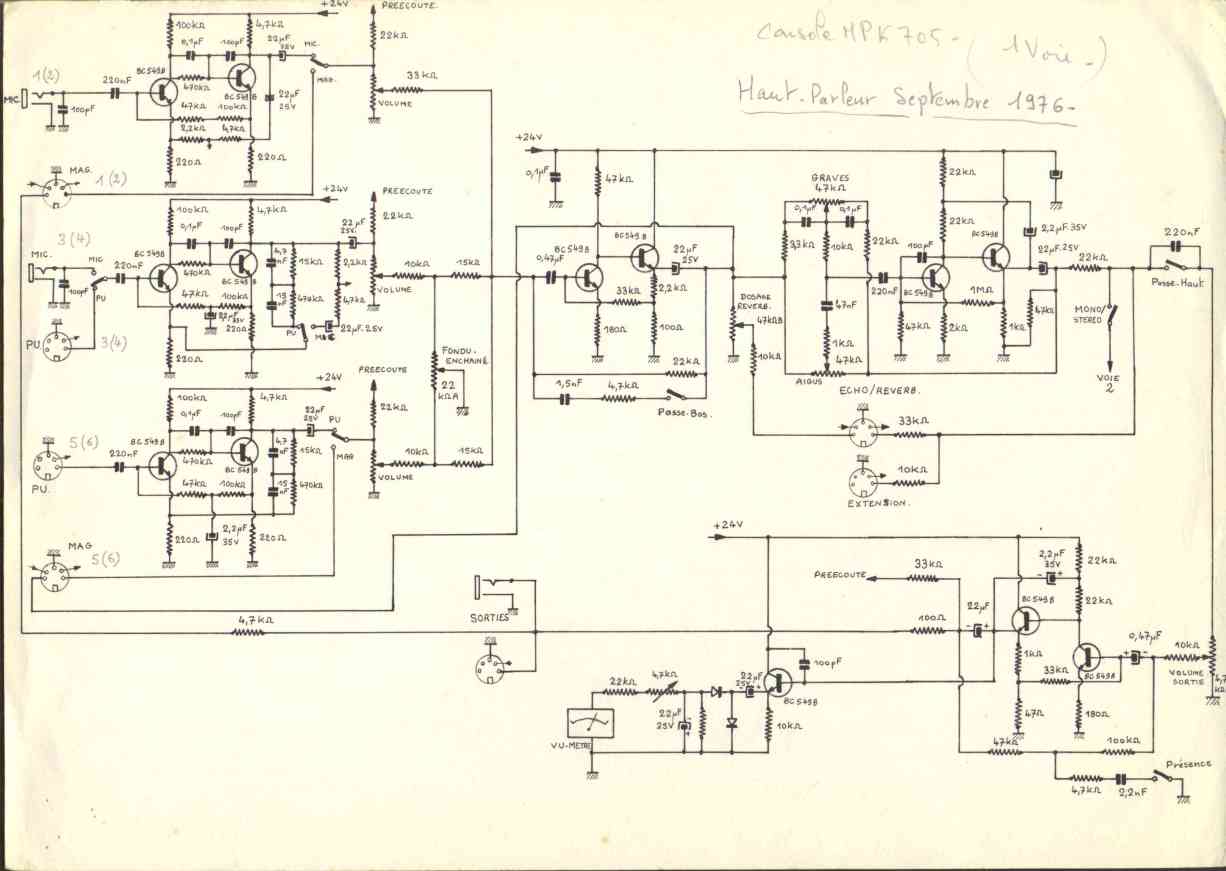 Console MPK 705 - ( 1 Voie - )
Haut-Parleur Septembre 1976 -
+24V
PREECOUTE
100kΩ
4,7kΩ
22kΩ
0,1µF
100pF
22µF
35V
MIC.
MAG.
1(2)
MIC.
220nF
100pF
BC549B
470kΩ
BC549B
22µF
25V
33kΩ
VOLUME
47kΩ
100kΩ
2,2kΩ
47kΩ
220Ω
220Ω
MAG.
1(2)
+24V
PREECOUTE
100kΩ
4,7kΩ
22kΩ
0,1µF
100pF
22µF
25V.
3(4)
MIC.
MIC
PU
220nF
100pF
BC549B
BC549B
470kΩ
4,7
nF
15kΩ
2,2kΩ
10kΩ
15kΩ
VOLUME
47kΩ
100kΩ
15
nF
470kΩ
4,7kΩ
22µF
35V
220Ω
PU
22µF.25V
PU.
3(4)
220Ω
FONDU-
ENCHAINÉ
22
kΩA
+24V
PREECOUTE
100kΩ
4,7kΩ
22kΩ
0,1µF
100pF
22µF
25V
PU
MAG
5(6)
PU.
220nF
BC549B
BC549B
470kΩ
4,7
nF
15kΩ
10kΩ
15kΩ
VOLUME
47kΩ
100kΩ
15
nF
470kΩ
220Ω
2,2µF
35V
220Ω
MAG
5(6)
+24V
0,1µF
47kΩ
BC549B
BC549B
0,47µF
22µF
25V
33kΩ
2,2kΩ
180Ω
100Ω
22kΩ
1,5nF
4,7kΩ
Passe-Bas.
DOSAGE
REVERB.
47kΩB
10kΩ
GRAVES
47kΩ
0,1µF
0,1µF
33kΩ
10kΩ
22kΩ
47nF
1kΩ
47kΩ
AIGUS
220nF
22kΩ
22kΩ
100pF
BC549B
BC549B
1MΩ
47kΩ
2kΩ
1kΩ
47kΩ
2,2µF.35V
22µF.25V
22kΩ
220nF
Passe-Haut.
MONO/
STEREO
VOIE
2
ECHO/REVERB.
33kΩ
10kΩ
EXTENSION.
+24V
PREECOUTE
33kΩ
2,2µF
35V
22kΩ
22kΩ
BC549B
SORTIES
4,7kΩ
100Ω
22µF
0,47µF
10kΩ
VOLUME
SORTIE
4,7
kΩ
1kΩ
33kΩ
BC549B
47Ω
180Ω
47kΩ
100kΩ
4,7kΩ
2,2nF
Présence
100pF
BC549B
22kΩ
4,7kΩ
22µF
25V
22µF
25V
10kΩ
VU-METRE